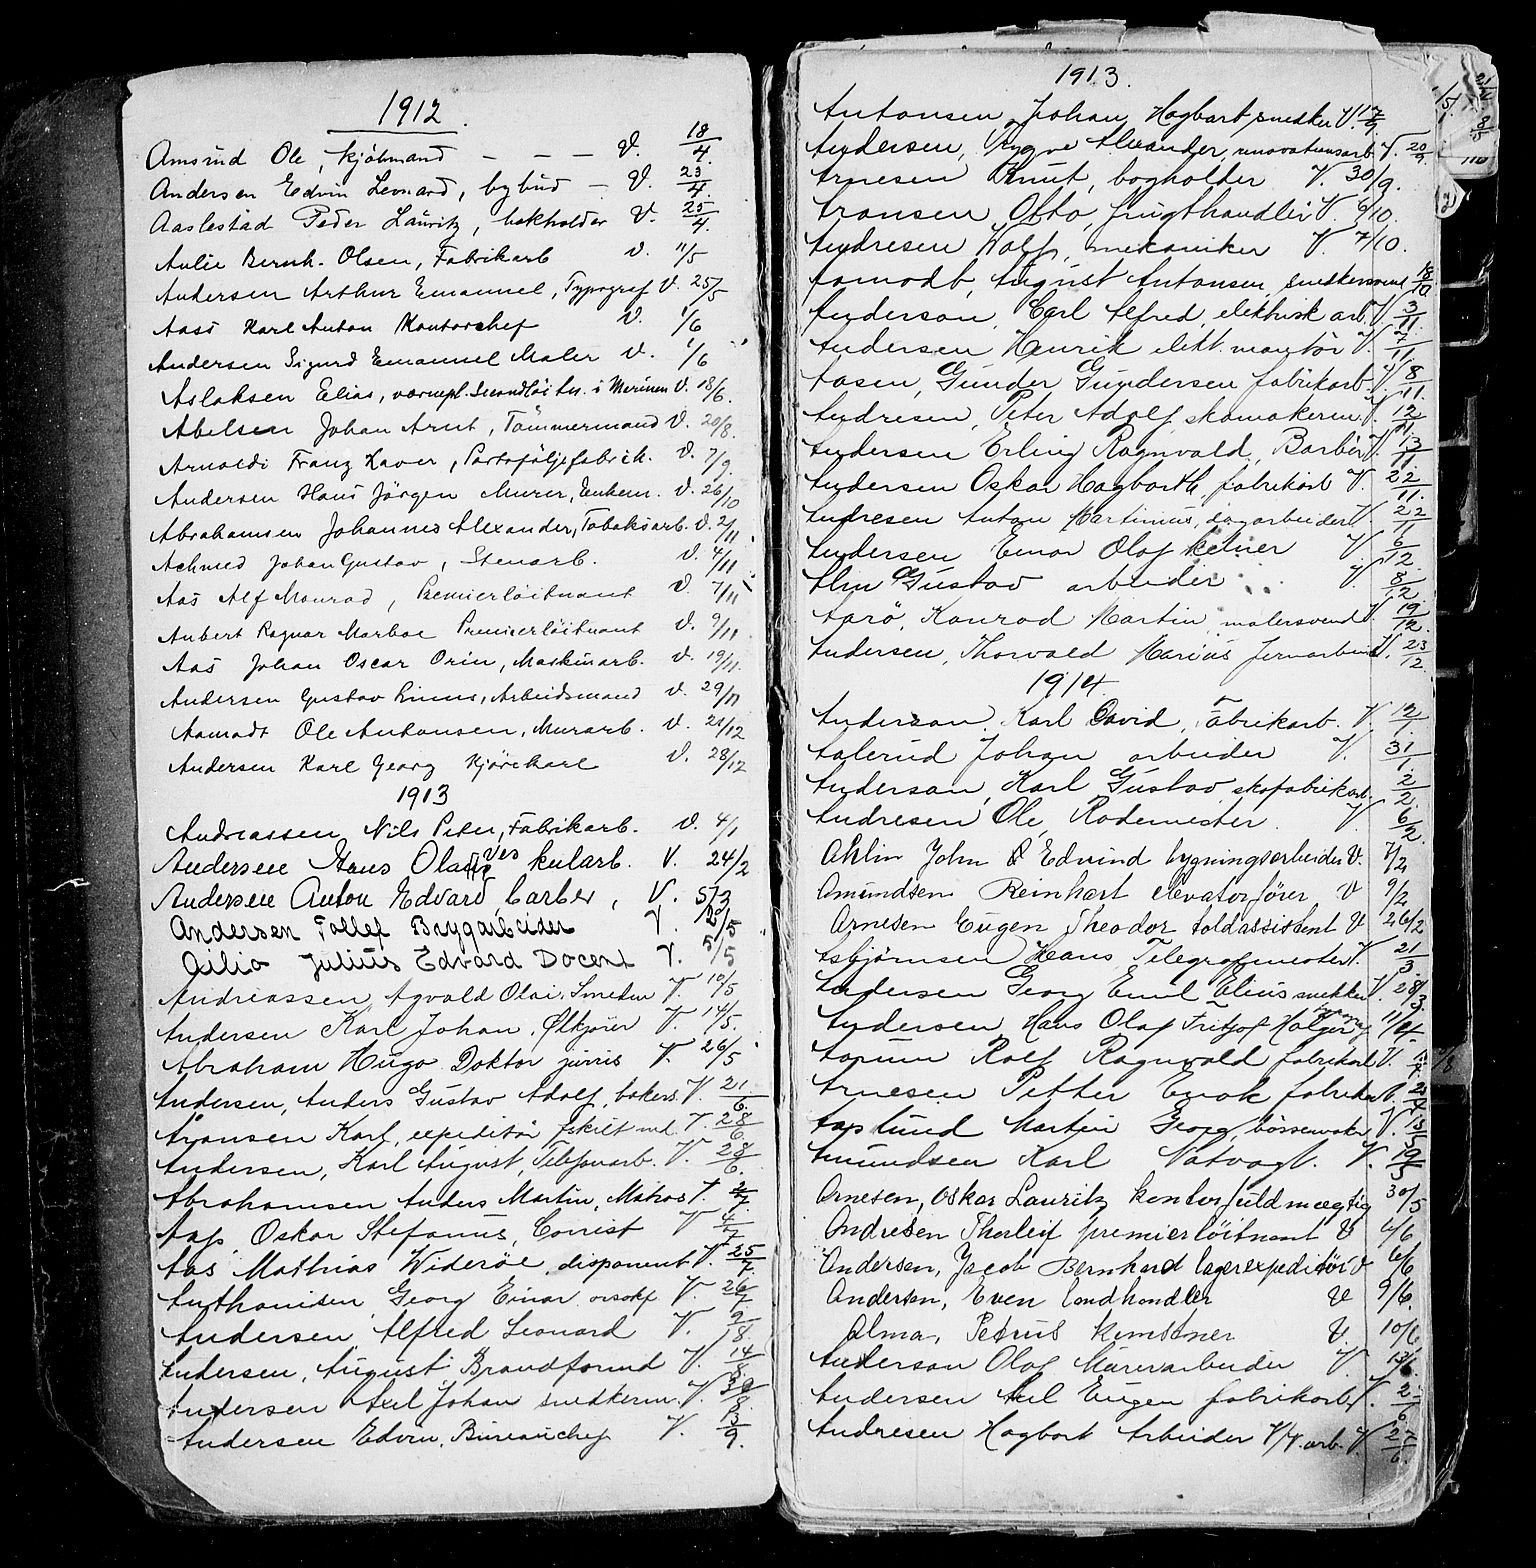 1912.
Amsrud Ole, kjöbmand — — — V. 18/4.
Andersen Edvin Leonard, bybud — V. 23/4.
Aaslestad Peder Lauritz, bokholder V. 25/4.
Aulie Bernh. Olsen, Fabrikarb V. 11/5
Andersen Arthur Emanuel, Typograf V. 25/5
Aass Karl Anton Kontorchef V. 1/6
Andersen Sigurd Emanuel Maler V. 1/6
Aslaksen Elias, vernepl. Secondlöitn. i Marinen V. 18/6.
Abelsen Johan Arnt, Tömmermand V. 20/8.
Arnoldi Franz Xaver, Portefåljefabrik. V. 7/9.
Andersen Hans Jörgen Murer, Enkem. V. 26/10
Abrahamsen Johannes Alexander, Tobaksarb. V. 2/11.
Achmed Johan Gustav, Stenarb. V. 4/11
Aas Alf Monrad, Premierlöitnant V. 7/11
Aubert Ragnar Marboe Premierlöitnant V. 9/11
Aas Johan Oscar Orin, Maskinarb. V. 19/11.
Andersen Gustav Linus, Arbeidsmand V. 29/11
Aamodt Ole Antonsen, Murarb. V. 21/12
Andersen Karl Georg Kjörekarl V. 28/12
1913
Andreassen Nils Peter, Fabrikarb. V. 4/1
Andersen Hans Olaves kularb. V. 24/2
Andersen Anton Edvard barber, V. 5/3
Andersen Tollef Brygarbeider V. 2/5
Ailio Julius Edvard Docent V. 5/5
Andreassen Agvald Olai, Smeden V. 10/5
Andersen Karl Johan, Ølkjører V. 14/5.
Abraham Hugo Doktor juris V. 26/5
Andersen, Anders Gustav Adolf, bakers. V. 21/6.
Aronsen Karl, expeditör, fskilt md. V. 28/6
Andersen, Karl August, Telefonarb. V. 28/6.
Abrahamsen Anders Martin, Matros V. 2/7.
Aas Oskar Stefanus, Tourist V 4/7
Aas Mathias Wideröe, disponent V. 25/7.
Anthonisen Georg Einar V. 26/7
Andersen, Alfred Leonard V. 9/8.
Andersen, August, Brandformd V. 14/8
Andersen Axel Johan snedkerm. V. 30/8.
Andersen Edvin, Bureauchef V. 13/9.
1913.
Antonsen, Johan Hagbart, snedker V. 17/9
Andersen, Trygve Alexander, renovationsarb V. 20/9.
Arnesen Knut, bogholter V. 30/9.
Aronsen, Otto, frugthandler V. 6/10.
Andresen Rolf, mekaniker V. 7/10.
Aamodt, August Antonsen, snedkersvend 18/10
Anderson, Carl Alfred, elektrisk arb. V 3/11.
Andersen Henrik elekt. montör V. 7/11
Aasen, Gunder Gundersen fabrikarb. V. 8/11.
Andresen, Peter Adolf, skomakerm. V. 12/11
Andersen Erling Ragnvald, Barber V. 13/11
Andersen Oskar Hagbarth, fabrikarb V. 22/11.
Andresen Anton Martinius, dagarbeider V. 22/11
Andersen Einar Olaf kelner V 6/12.
Alm Gustav arbeider V. 8/12.
Aarö, Konrad Martin, malersvend V. 19/12.
Andersen, Thorvald Marius Jernarbeid. V. 23/12
1914.
Anderson, Karl David, Fabrikarb. V. 2/1.
Aalerud Johan arbeider V. 31/1.
Anderson, Karl Gustav, skofabrikarb. 2/2.
Andresen Ole, Rodemester. V. 6/2.
Ahlin John & Edvind bygningsarbeider V. 7/2
Amundsen Reinhart elevatorförer V 9/2
Arnesen Eugen Theodor toldassistent V 26/2
Asbjørnsen Hans, Telegrafmester V. 21/3.
Andersen Georg Emil Elius snekker V. 28/3.
Andersen, Hans Olaf Fritjof Holger 11/4
Aarum Rolf Ragnvald fabrikarb V.
Arnesen Petter Enok fabrikarb V. 2/4
Asplund Martin Georg, börsemaker V. 15/5
Amundsen Karl Natvagt. V. 19/5
Arnesen, Oskar Lauritz kontorfuldmægtig 30/5
Andresen Thorleif premierlöitnant V 4/6
Andersen, Jacob Bernhard lagerexpeditör V 6/6
Andersen, Even landhandler V 9/6.
Alma, Petrus kunstner V. 10/6
Anderson Olof Murerarbeider V. 13/6.
Andersen Axel Eugen fabrikarb V. 2
Andresen Hagbart Arbeider V/V. arb. V. 27/6.